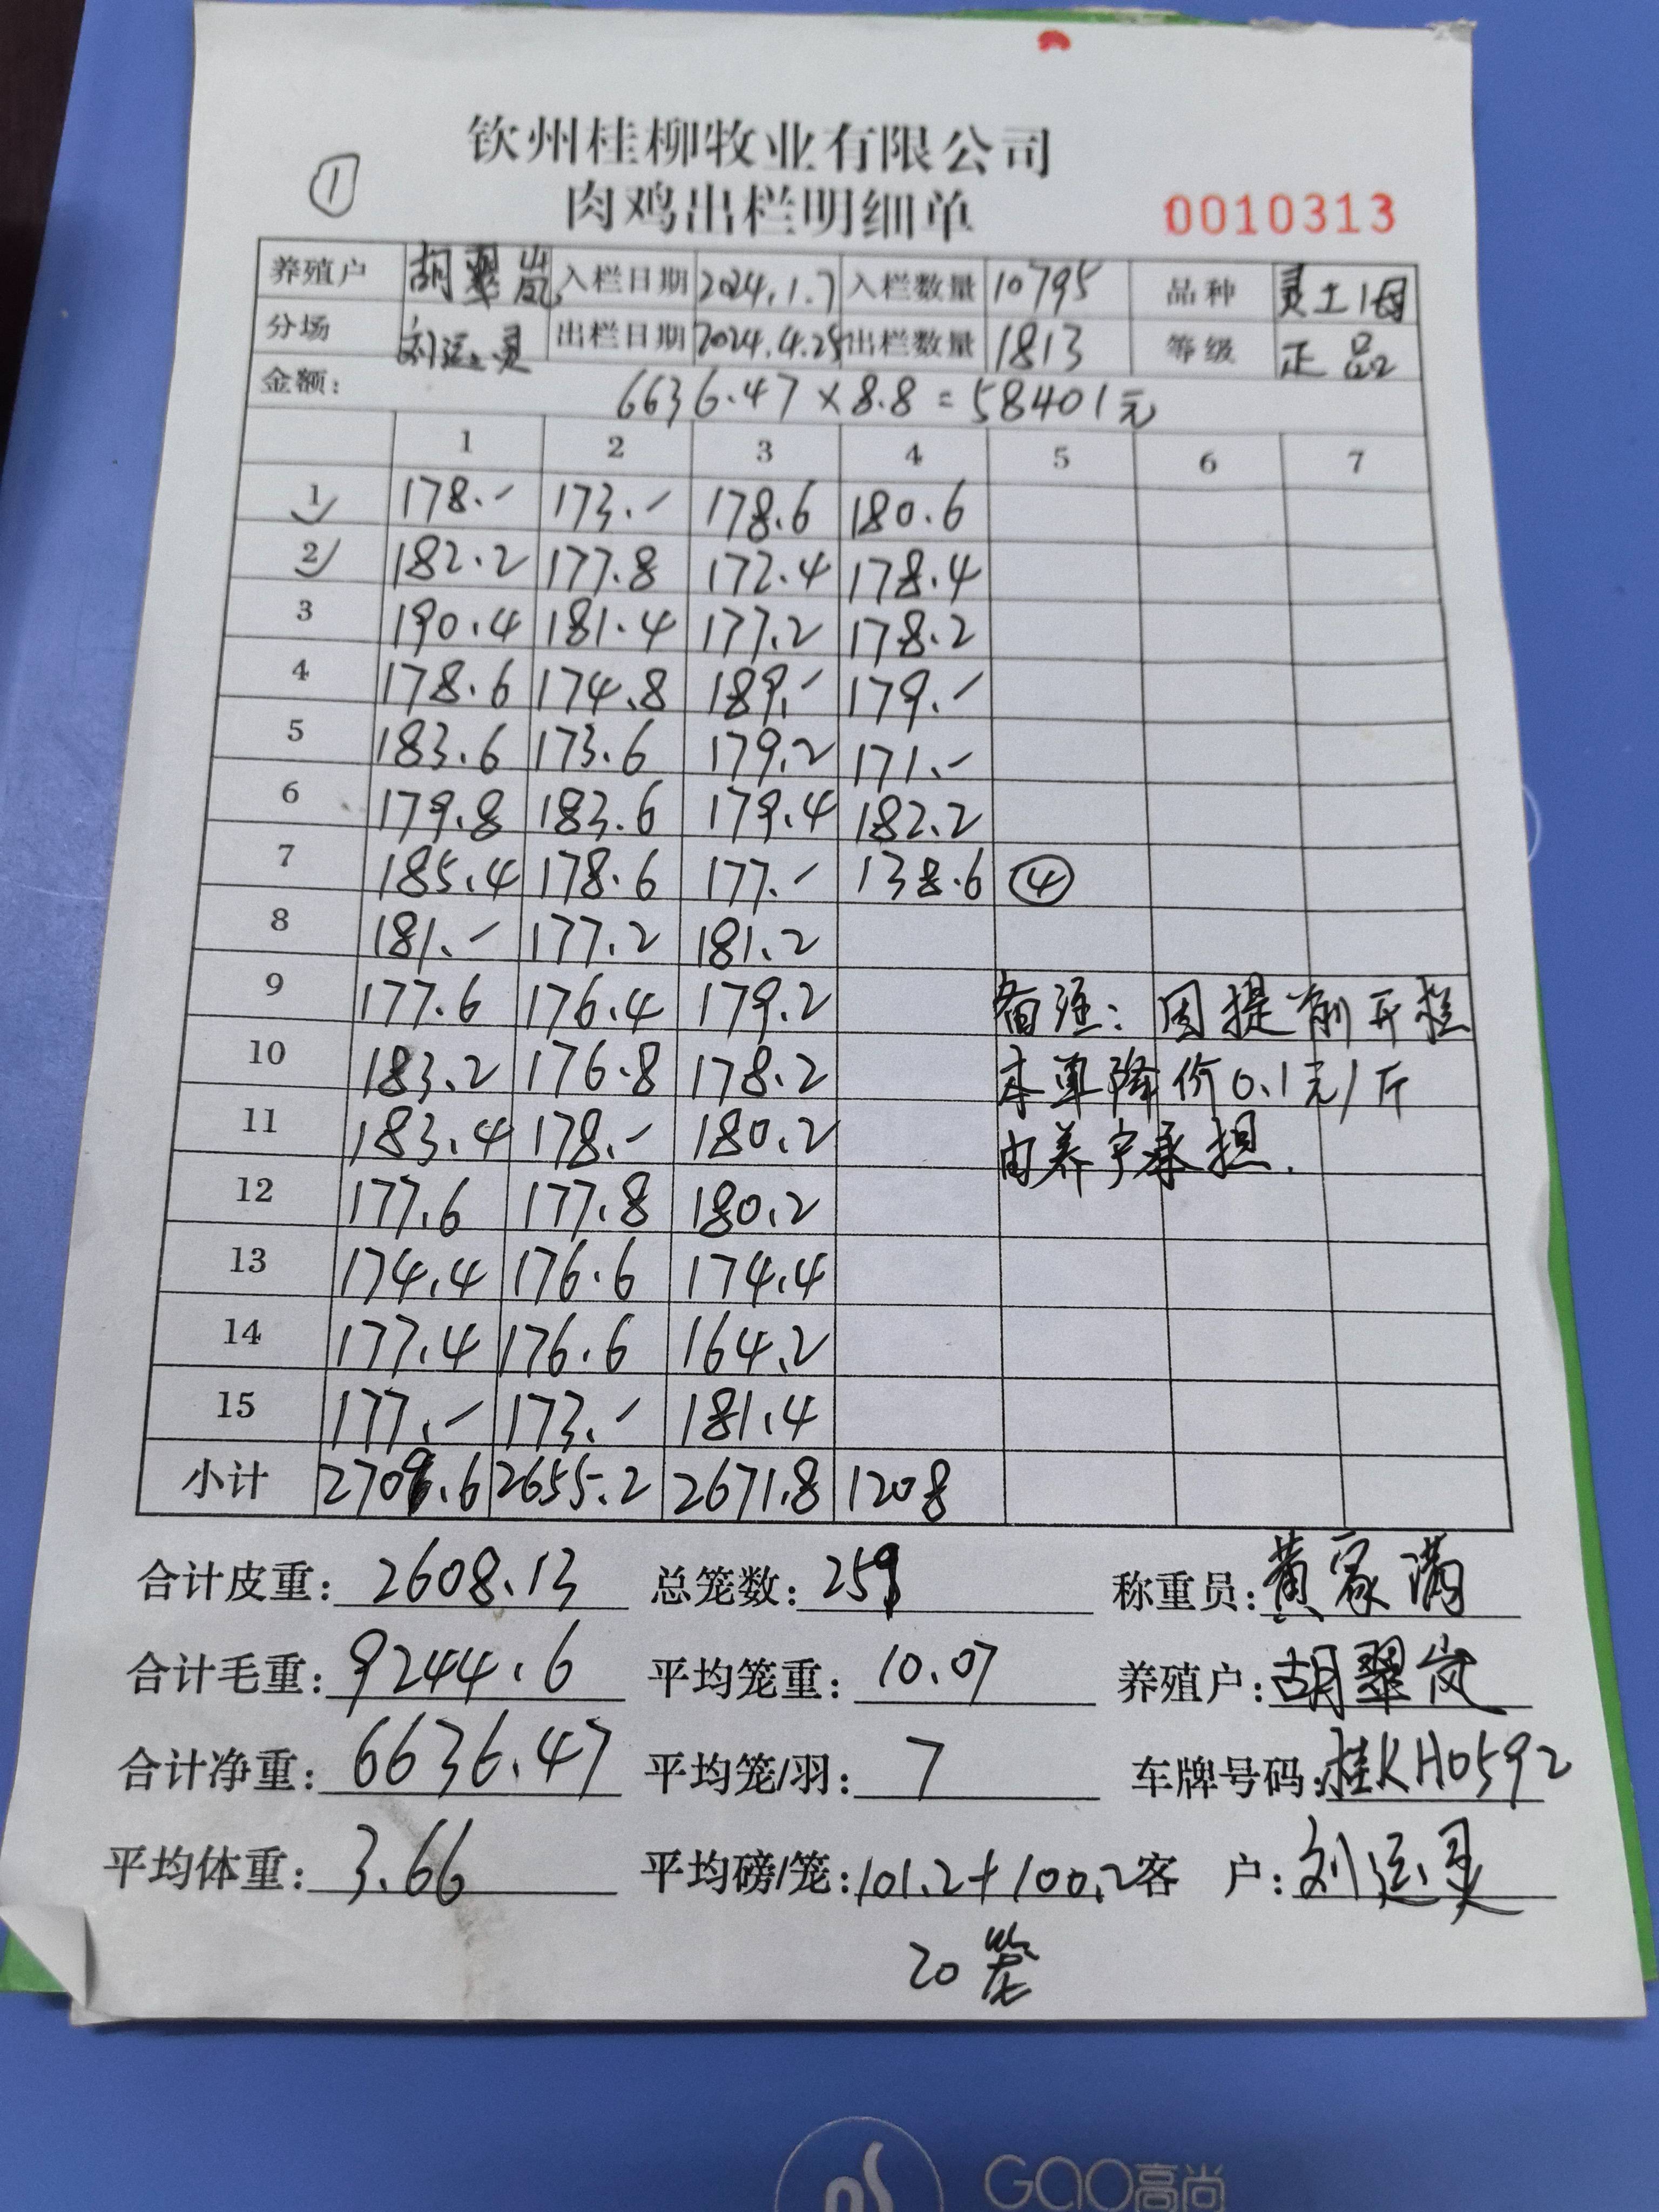 钦州桂柳牧业有限公司
① 肉鸡出栏明细单 0010313
养殖户 胡翠岚 入栏日期 2024.1.7 入栏数量 10795 品种 灵土1母
分场 刘运灵 出栏日期 2024.4.25 出栏数量 1813 等级 正品
金额: 6636.47×8.8=58401元
1 2 3 4 5 6 7
1 178.- 173.- 178.6 180.6
2 182.2 177.8 172.4 178.4
3 190.4 181.4 177.2 178.2
4 178.6 174.8 189.- 179.-
5 183.6 173.6 179.2 171.-
6 179.8 183.6 179.4 182.2
7 185.4 178.6 177.- 138.6 ④
8 181.- 177.2 181.2
9 177.6 176.4 179.2 备注: 因提前开栏
10 183.2 176.8 178.2 本车降价0.1元/斤
11 183.4 178.- 180.2 由养户承担.
12 177.6 177.8 180.2
13 174.4 176.6 174.4
14 177.4 176.6 164.2
15 177.- 173.- 181.4
小计 2709.6 2655.2 2671.8 1208
合计皮重: 2608.13 总笼数: 259 称重员: 黄家满
合计毛重: 9244.6 平均笼重: 10.07 养殖户: 胡翠岚
合计净重: 6636.47 平均笼/羽: 7 车牌号码: 桂KH0592
平均体重: 3.66 平均磅/笼: 101.2+100.2 客 户: 刘运灵
20笼
GAO高尚